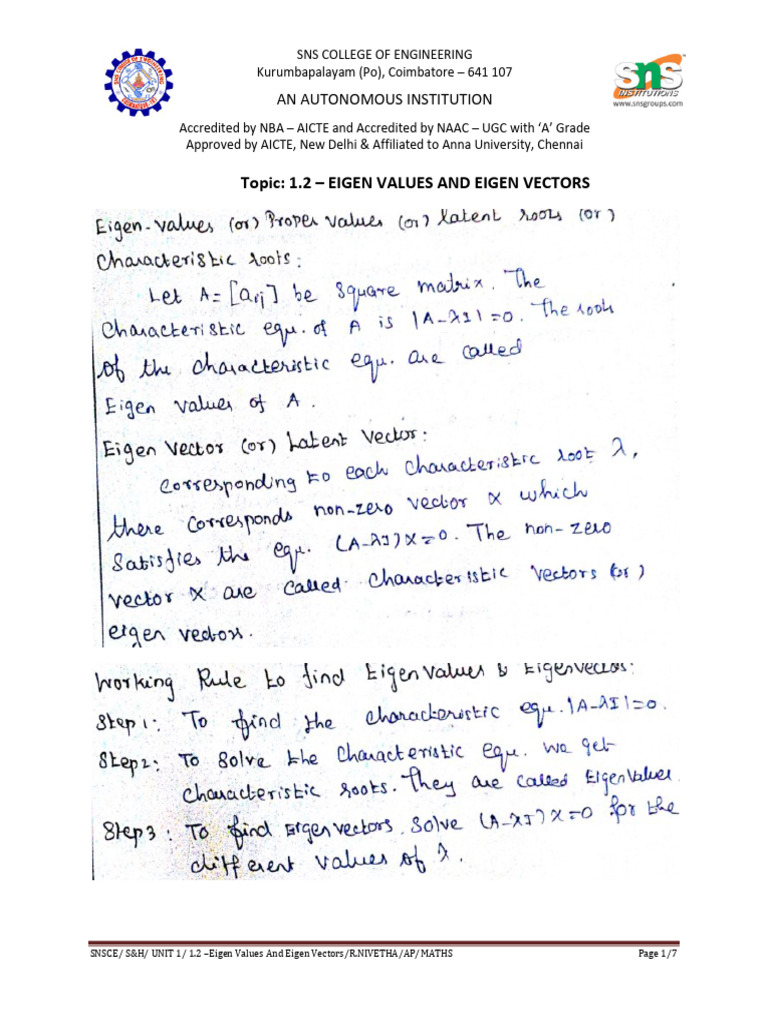 SNS COLLEGE OF ENGINEERING
Kurumbapalayam (Po), Coimbatore – 641 107
AN AUTONOMOUS INSTITUTION
Accredited by NBA – AICTE and Accredited by NAAC – UGC with ‘A’ Grade
Approved by AICTE, New Delhi & Affiliated to Anna University, Chennai
SNS COLLEGE OF ENGINEERING
COIMBATORE
sns
INSTITUTIONS
www.snsgroups.com
Topic: 1.2 – EIGEN VALUES AND EIGEN VECTORS
Eigen-values (or) Proper values (or) latent roots (or)
Characteristic roots:
Let A = [aij] be square matrix. The
Characteristic equ. of A is |A-λI|=0. The roots
of the characteristic equ. are called
Eigen values of A.
Eigen Vector (or) Latent Vector:
Corresponding to each characteristic root λ,
there corresponds non-zero vector x which
Satisfies the equ. (A-λI)X=0. The non-zero
vector X are called characteristic vectors (or)
eigen vectors.
Working Rule to find Eigen values & Eigenvectors:
Step 1: To find the characteristic equ. |A-λI|=0.
Step 2: To solve the characteristic equ. we get
characteristic roots. They are called Eigenvalues
Step 3: To find Eigenvectors, solve (A-λI)X=0 for the
different values of λ.
SNSCE/ S&H/ UNIT 1/ 1.2 –Eigen Values And Eigen Vectors/R.NIVETHA/AP/MATHS Page 1/7